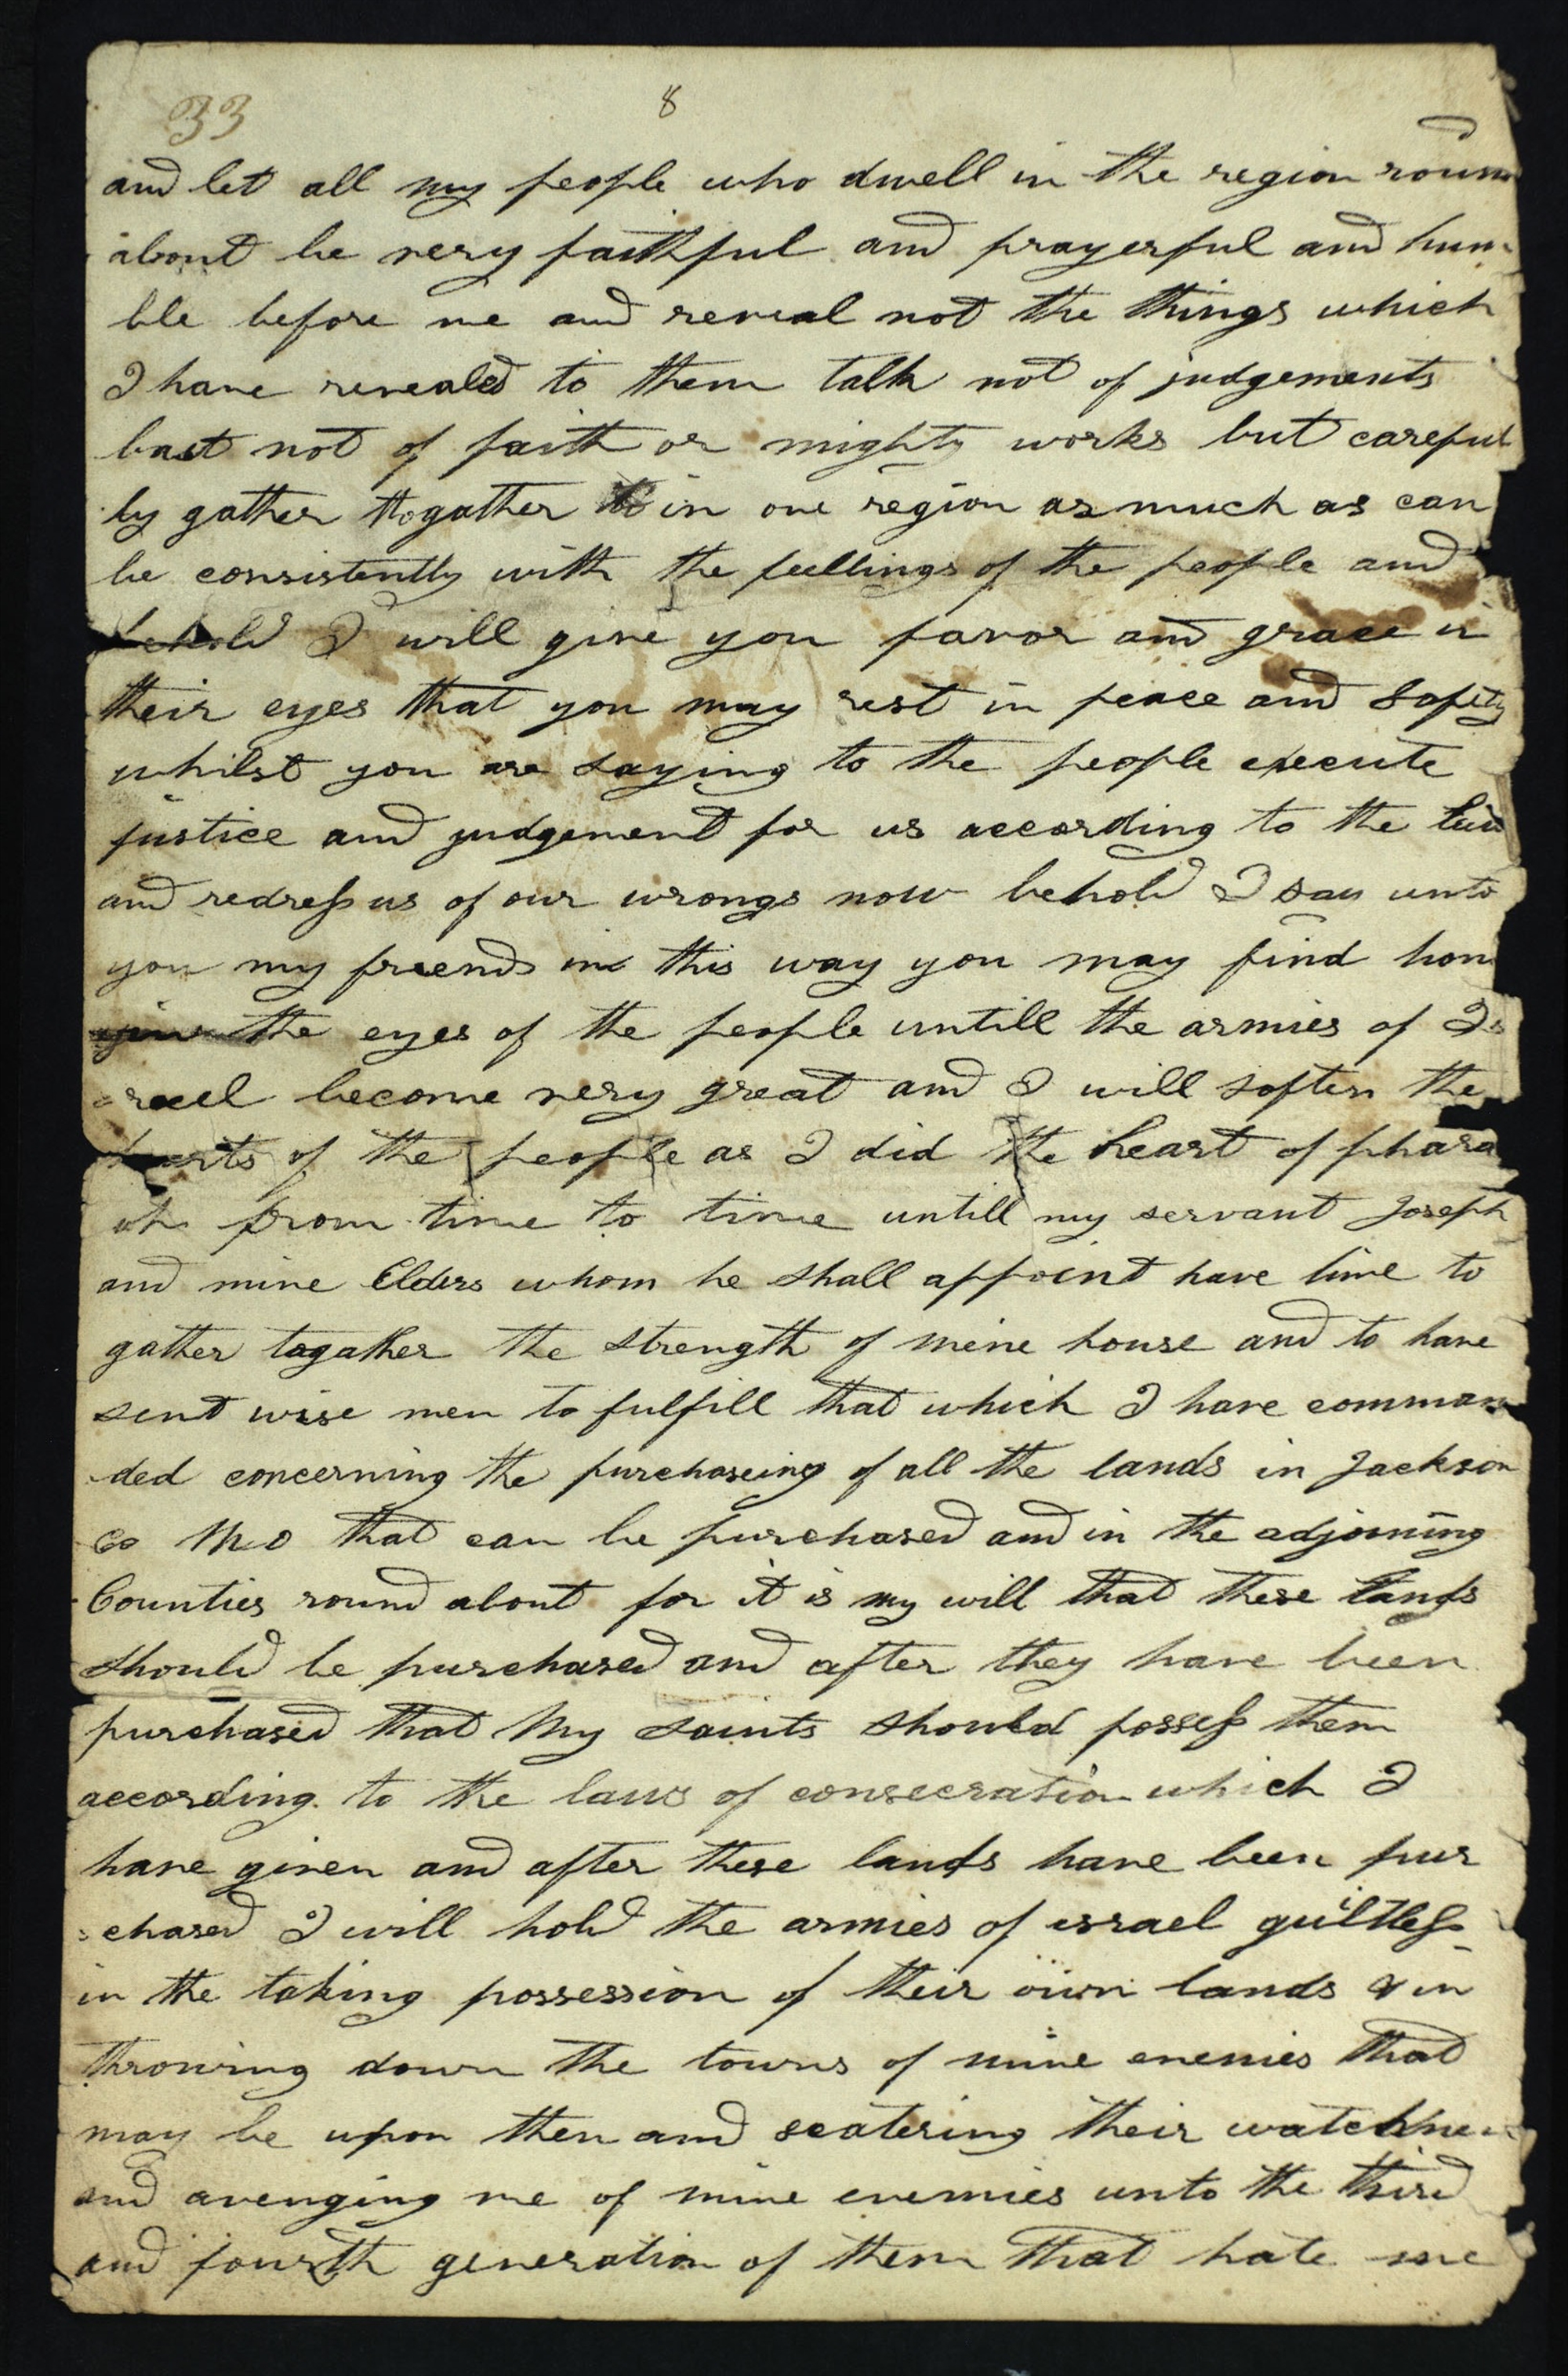 33
8
and let all my people who dwell in the region roun
about be very faithful and prayerful and hum
ble before me and reveal not the things which
I have revealed to them talk not of judgements
bast not of faith or mighty works but careful
ly gather togather in one region as much as can
be consistently with the feellings of the people and
behold I will give you favor and grace in
their eyes that you may rest in peace and Safity
whilst you are saying to the people execute
justice and judgement for us according to the law
and redress us of our wrongs now behold I say unto
you my friends in this way you may find
the eyes of the people untill the armies of Is
rael become very great and I will soften the
hearts of the people as I did the heart of phara
oh from time to time untill my servant Joseph
and mine Elders whom he shall appoint have time to
gather togather the strength of mine house and to have
sent wise men to fulfill that which I have comman
ded concerning the purchaseing of all the lands in Jackson
co Mo that can be purchased and in the adjoining
Counties round about for it is my will that these lands
should be purchased and after they have been
purchased that my saints should possess them
according to the laws of consecration which I
have given and after these lands have been pur
chased I will hold the armies of israel guiltless
in the taking possession of their own lands & in
throwing down the towrs of mine enemies that
may be upon then and scatering their watchmen
and avenging me of mine enemies unto the third
and fourth generation of them that hate me